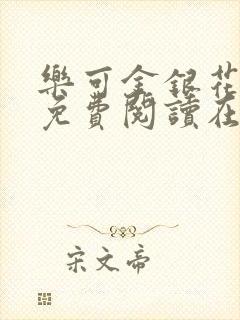 樂可金銀花
免費閱讀在
宋文帝